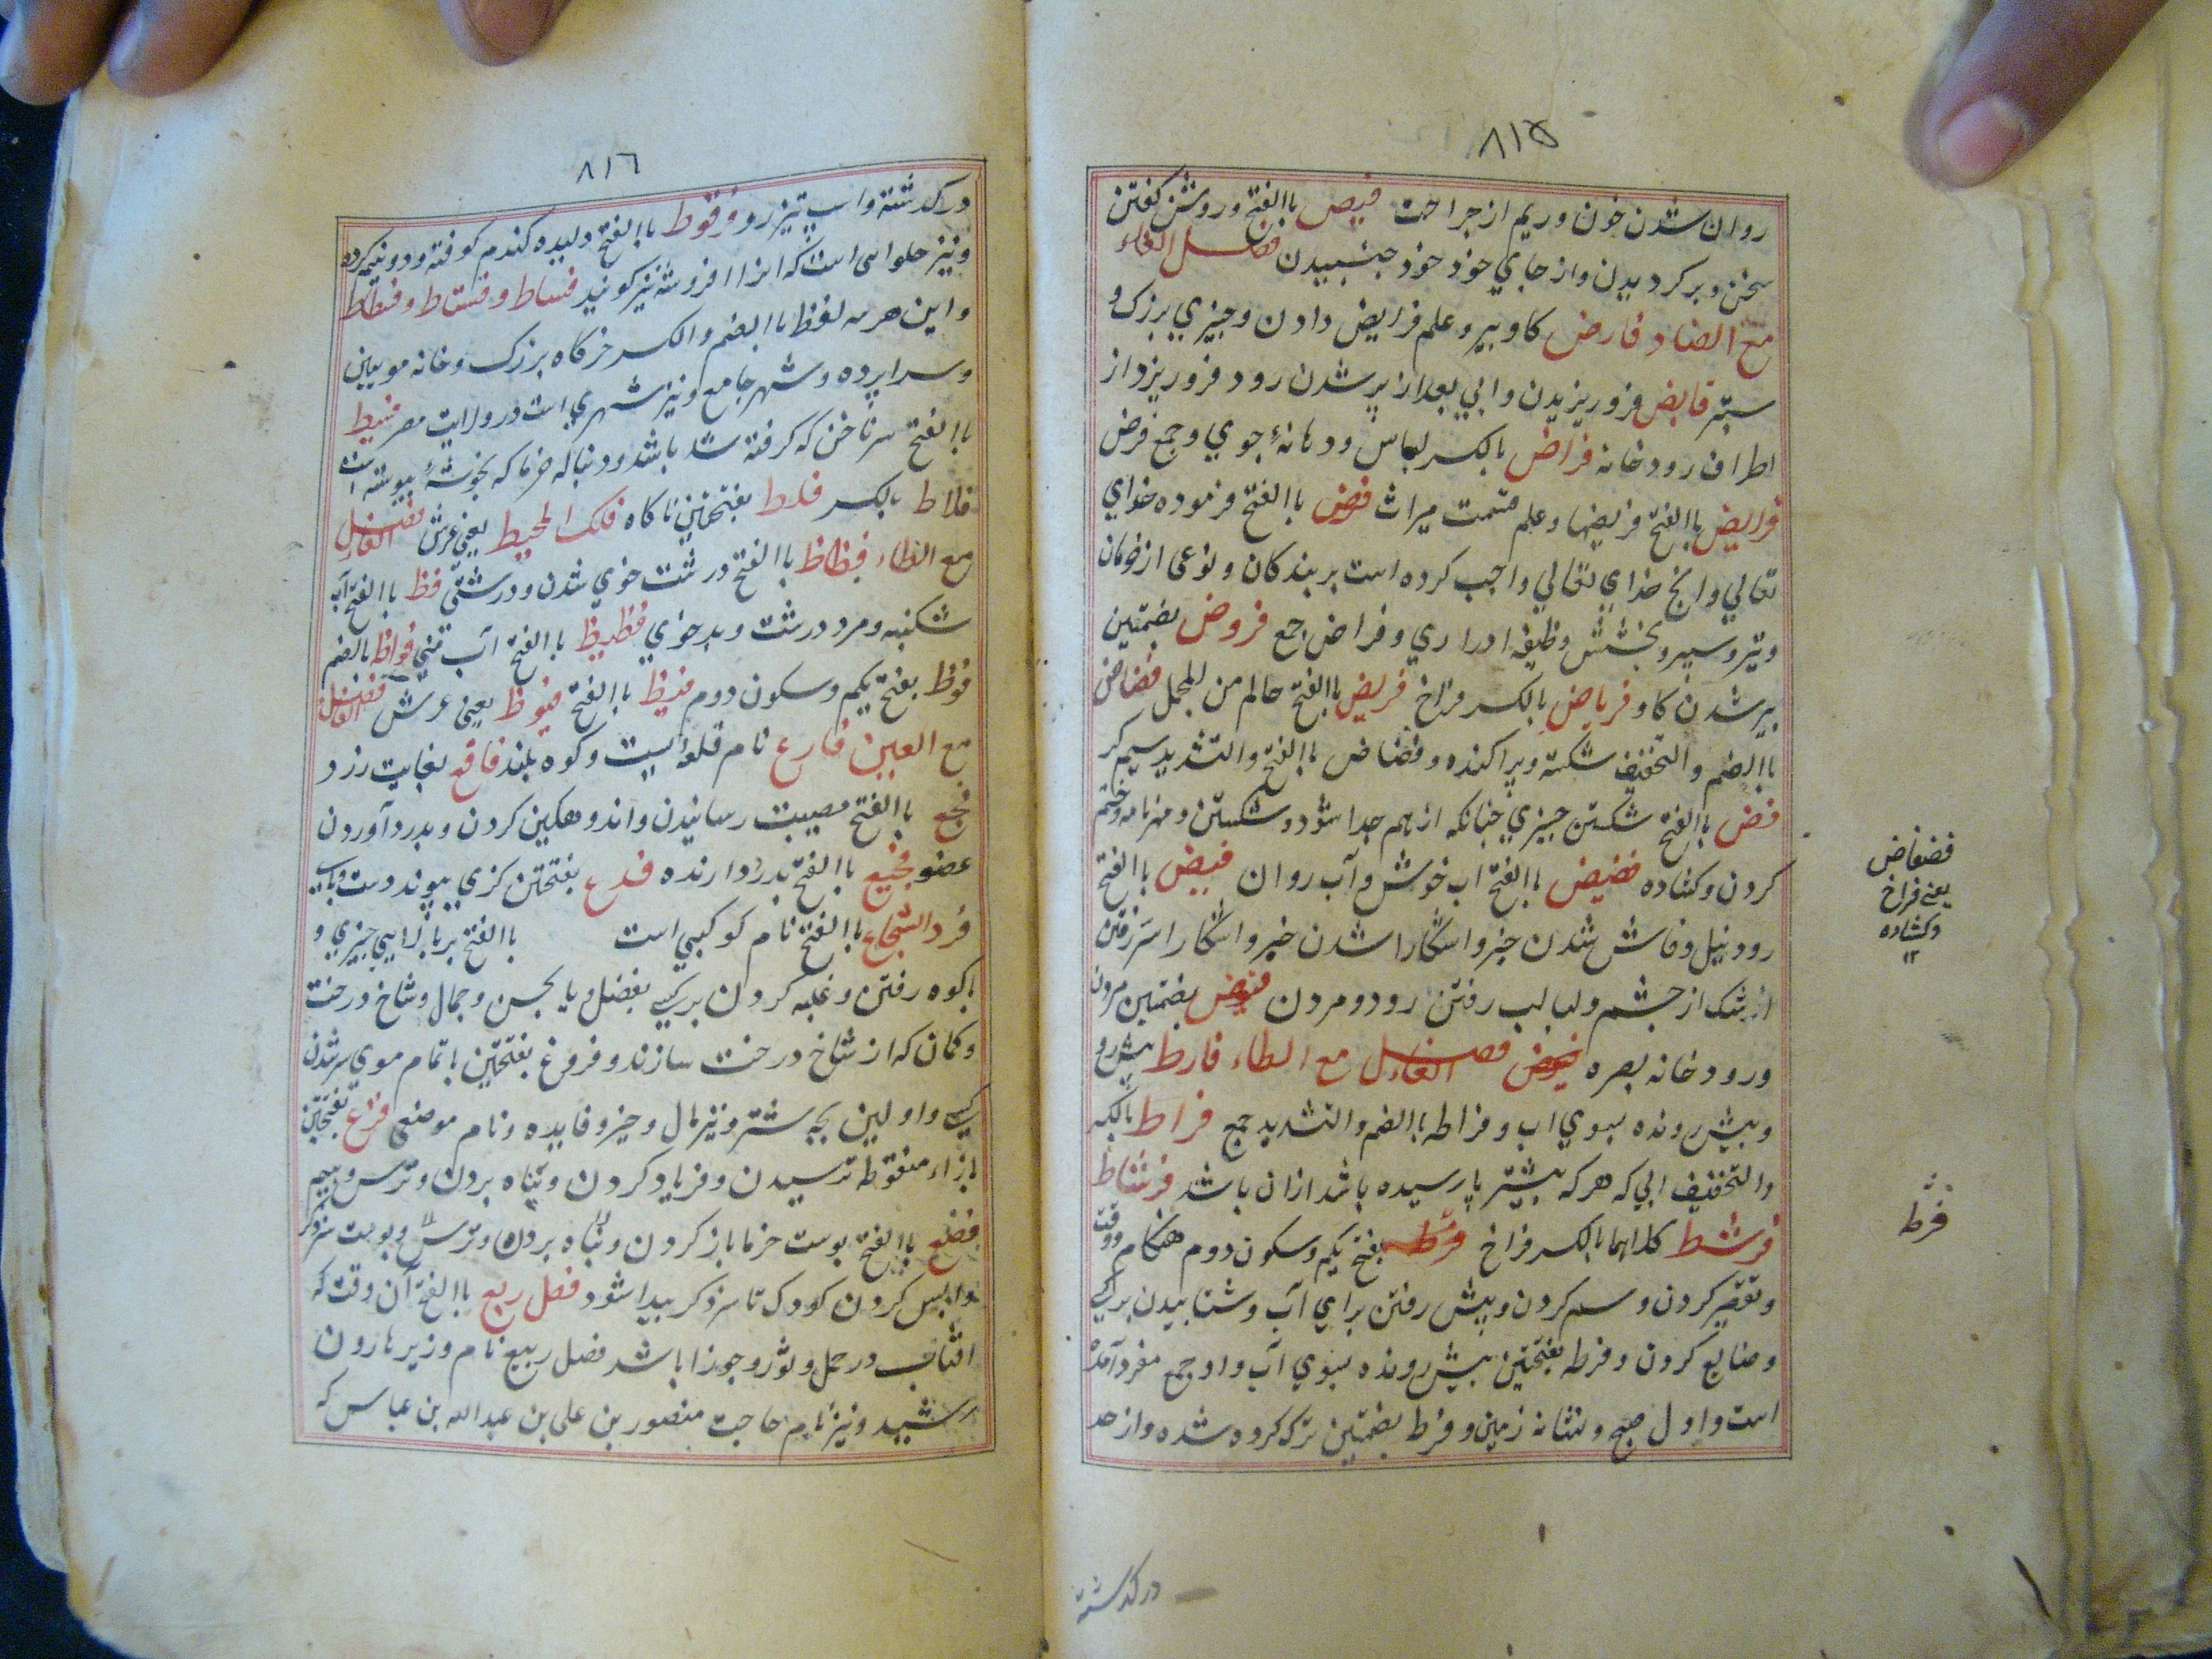 ۸۱۵
روان شدن خون و ریم از جراحت فیص باالفتح و روشن کفتن
سخن و برکردیدن و از جای خود خود جنبیدن فصل الفاء
مع الضاد فارض کاو پیر و علم فرایض دادن و چیزی بزرک و
ستبر فایض فرو ریزیدن و ابی بعد از پر شدن رود فرو ریزد از
اطراف رودخانه فراض بالکسر لباس و دهانۀ جوی و جمع فرض
فرایض باالفتح فریضها و علم قسمت میراث فرض باالفتح فرموده خدای
تعالی و انچ خدای تعالی واجب کرده است بر بندکان و نوعی از خرمان
و تیر و سپر و بخشش وظیفه ادراری و فراض جمع فروض بضمتین
پیر شدن کاو فریاض بالکسر فراخ فریض باالفتح حالم من المجمل فضاض
باالضم و التخفیف شکسته و پراکنده و فضاض باالفتح و التشدید سیم کر
فض باالفتح شکستن چیزی چنانکه از هم جدا شود و شکستن و مهر نامه و ختم
کردن و کشاده فضیض باالفتح اب خوش و آب روان فیض باالفتح
رود نیل و فاش شدن خبر و اشکارا شدن خبر و اشکارا سر رفتن
اشک از چشم و لبالب رفتن رود و مردن فیوض بضمتین مردن
و رودخانه بصره فیوض فصل الفاء مع الطاء فارط پیش رو
و پیش رونده بسوی اب و فراطه باالضم و التشدید جمع فراط بالکسر
و التخفیف ابی که هر که پیشتر بار رسیده باشد ازان باشد فرشاط
فرشط کلاهما بالکسر فراخ فرط بفتح یکم و سکون دوم هنکام و وقت
و تقصیر کردن و ستم کردن و پیش رفتن برای آب و شتابیدن بر کسی
و ضایع کردن و فرطه بفتحتین پیش رونده بسوی آب و او جمع مفرد آمده
است و اول صبح و نشانه زمین و فرط بضمتین ترک کرده شده و از حد
درکذشته
فضفاض
یعنی فراخ
و کشاده
۱۲
فرط
۸۱۶
درکذشته و اسپ تیزرو و فقوط باالفتح دلیده کندم کوفته و دونیم کرده
و نیز حلوایی است که انرا افروشه نیز کویند فساط و فستاط و فسطاط
و این هر سه لفظ باالضم و الکسر خرکاه بزرک و خانه مویین
و سراپرده و شهر جامع و نیز شهری است در ولایت مصر فسیط
باالفتح سر ناخن که کرفته شد باشد و دنباله خرما که بخوشۀ پیوسته است
فلاط بالکسر فلط بفتحتین ناکاه فلک المحیط یعنی عرش فصل الفاء
مع الظاء فظاظ باالفتح درشت خوی شدن و درشتی فظ باالفتح آب
شکنبه و مرد درشت و بدخوی فظیظ باالفتح آب منی فواظ بالضم
فوظ بفتح یکم و سکون دوم فیظ باالفتح فیوظ یعنی عرش فصل الفاء
مع العین فارع نام قلعه ایست و کوه بلند فاقع بغایت زرد
فجع باالفتح مصیبت رسانیدن و اندوهکین کردن و بدرد آوردن
عضو فجیع باالفتح بدرد ارنده فدع بفتحتن کژی پیوند دست و پای
فرد الشجاع باالفتح نام کوکبی است باالفتح بر بالایی چیزی و
باکوه رفتن و غلبه کردن بر کسی بفضل و یا بحسن و جمال و شاخ درخت
و کمان که از شاخ درخت سازند و فروغ بفتحتین باتمام موی سر شدن
کسی و اولین بچه شتر و نیز مال و خیر و فایده و نام موضعی فزع بفتحتین
بازاء منقوطه ترسیدن و فریاد کردن و پناه بردن و ترس و بیم
فضع باالفتح پوست خرما باز کردن و پناه بردن و ترس و پوست سر ذکر
واپس کردن کودک تا سر ذکر پیدا شود فصل ربیع باالفتح آن وقت که
افتاب در حمل و ثور و جوزا باشد فضل ربیع نام وزیر هارون
رشید و نیز نام حاجب منصور بن علی بن عبدالله بن عباس که